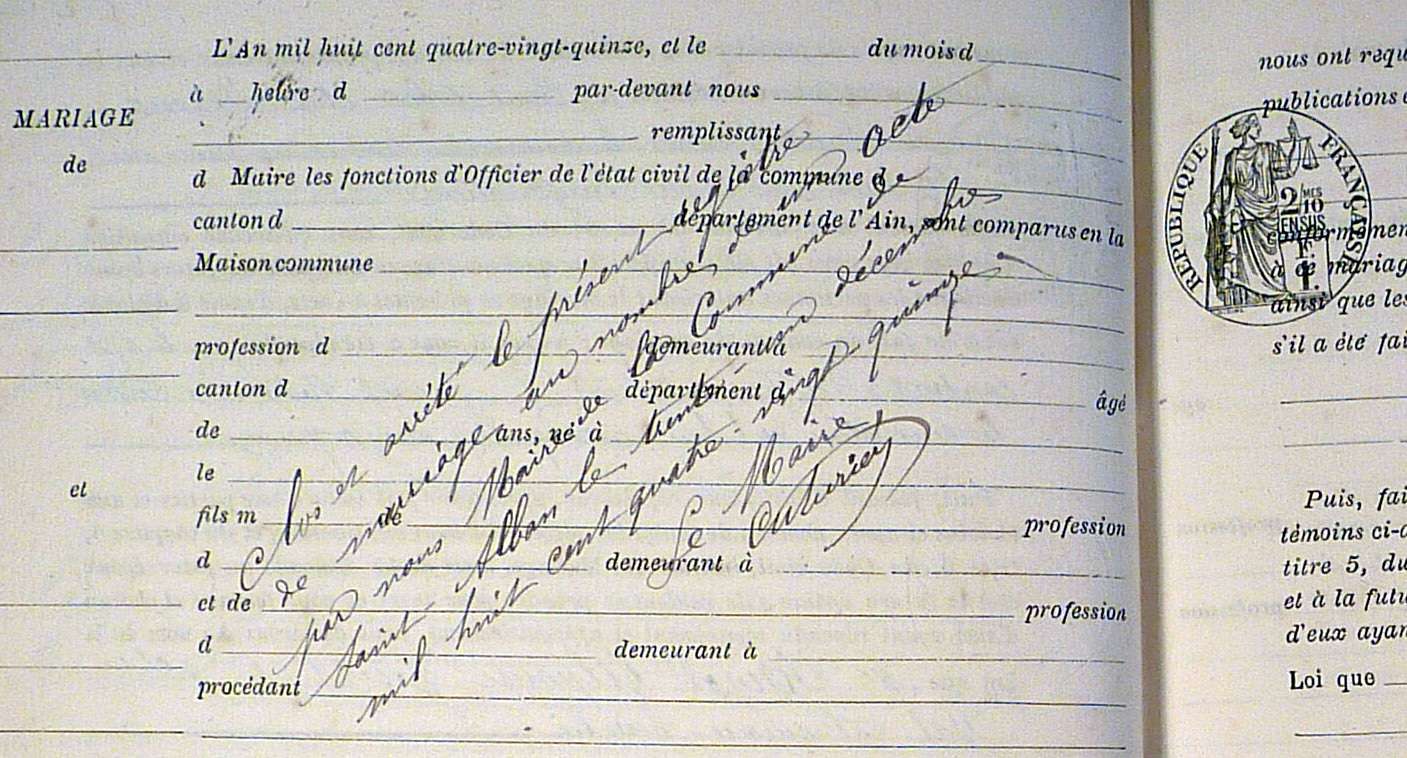 L'An mil huit cent quatre-vingt-quinze, et le du mois d
à heure d par-devant nous
MARIAGE
remplissant
de
d Maire les fonctions d'Officier de l'état civil de la commune d
canton d département de l'Ain, sont comparus en la
Maison commune
profession d demeurant à
canton d département d âgé
de ans, né à
le
et
fils m de profession
d demeurant à
et de profession
d demeurant à
procédant
Clos et arrêté le présent registre
de mariage au nombre de un acte
par nous Maire de la Commune de
Saint Alban le trente un décembre
mil huit cent quatre-vingt quinze
Le Maire
nous ont requ
publications
RÉPUBLIQUE FRANÇAISE
2 MES
10
EN SUS
1 f.
conformémen
à ce mariag
ainsi que les
s'il a été fai
Puis, fai
témoins ci-
titre 5, du
et à la futu
d'eux ayan
Loi que